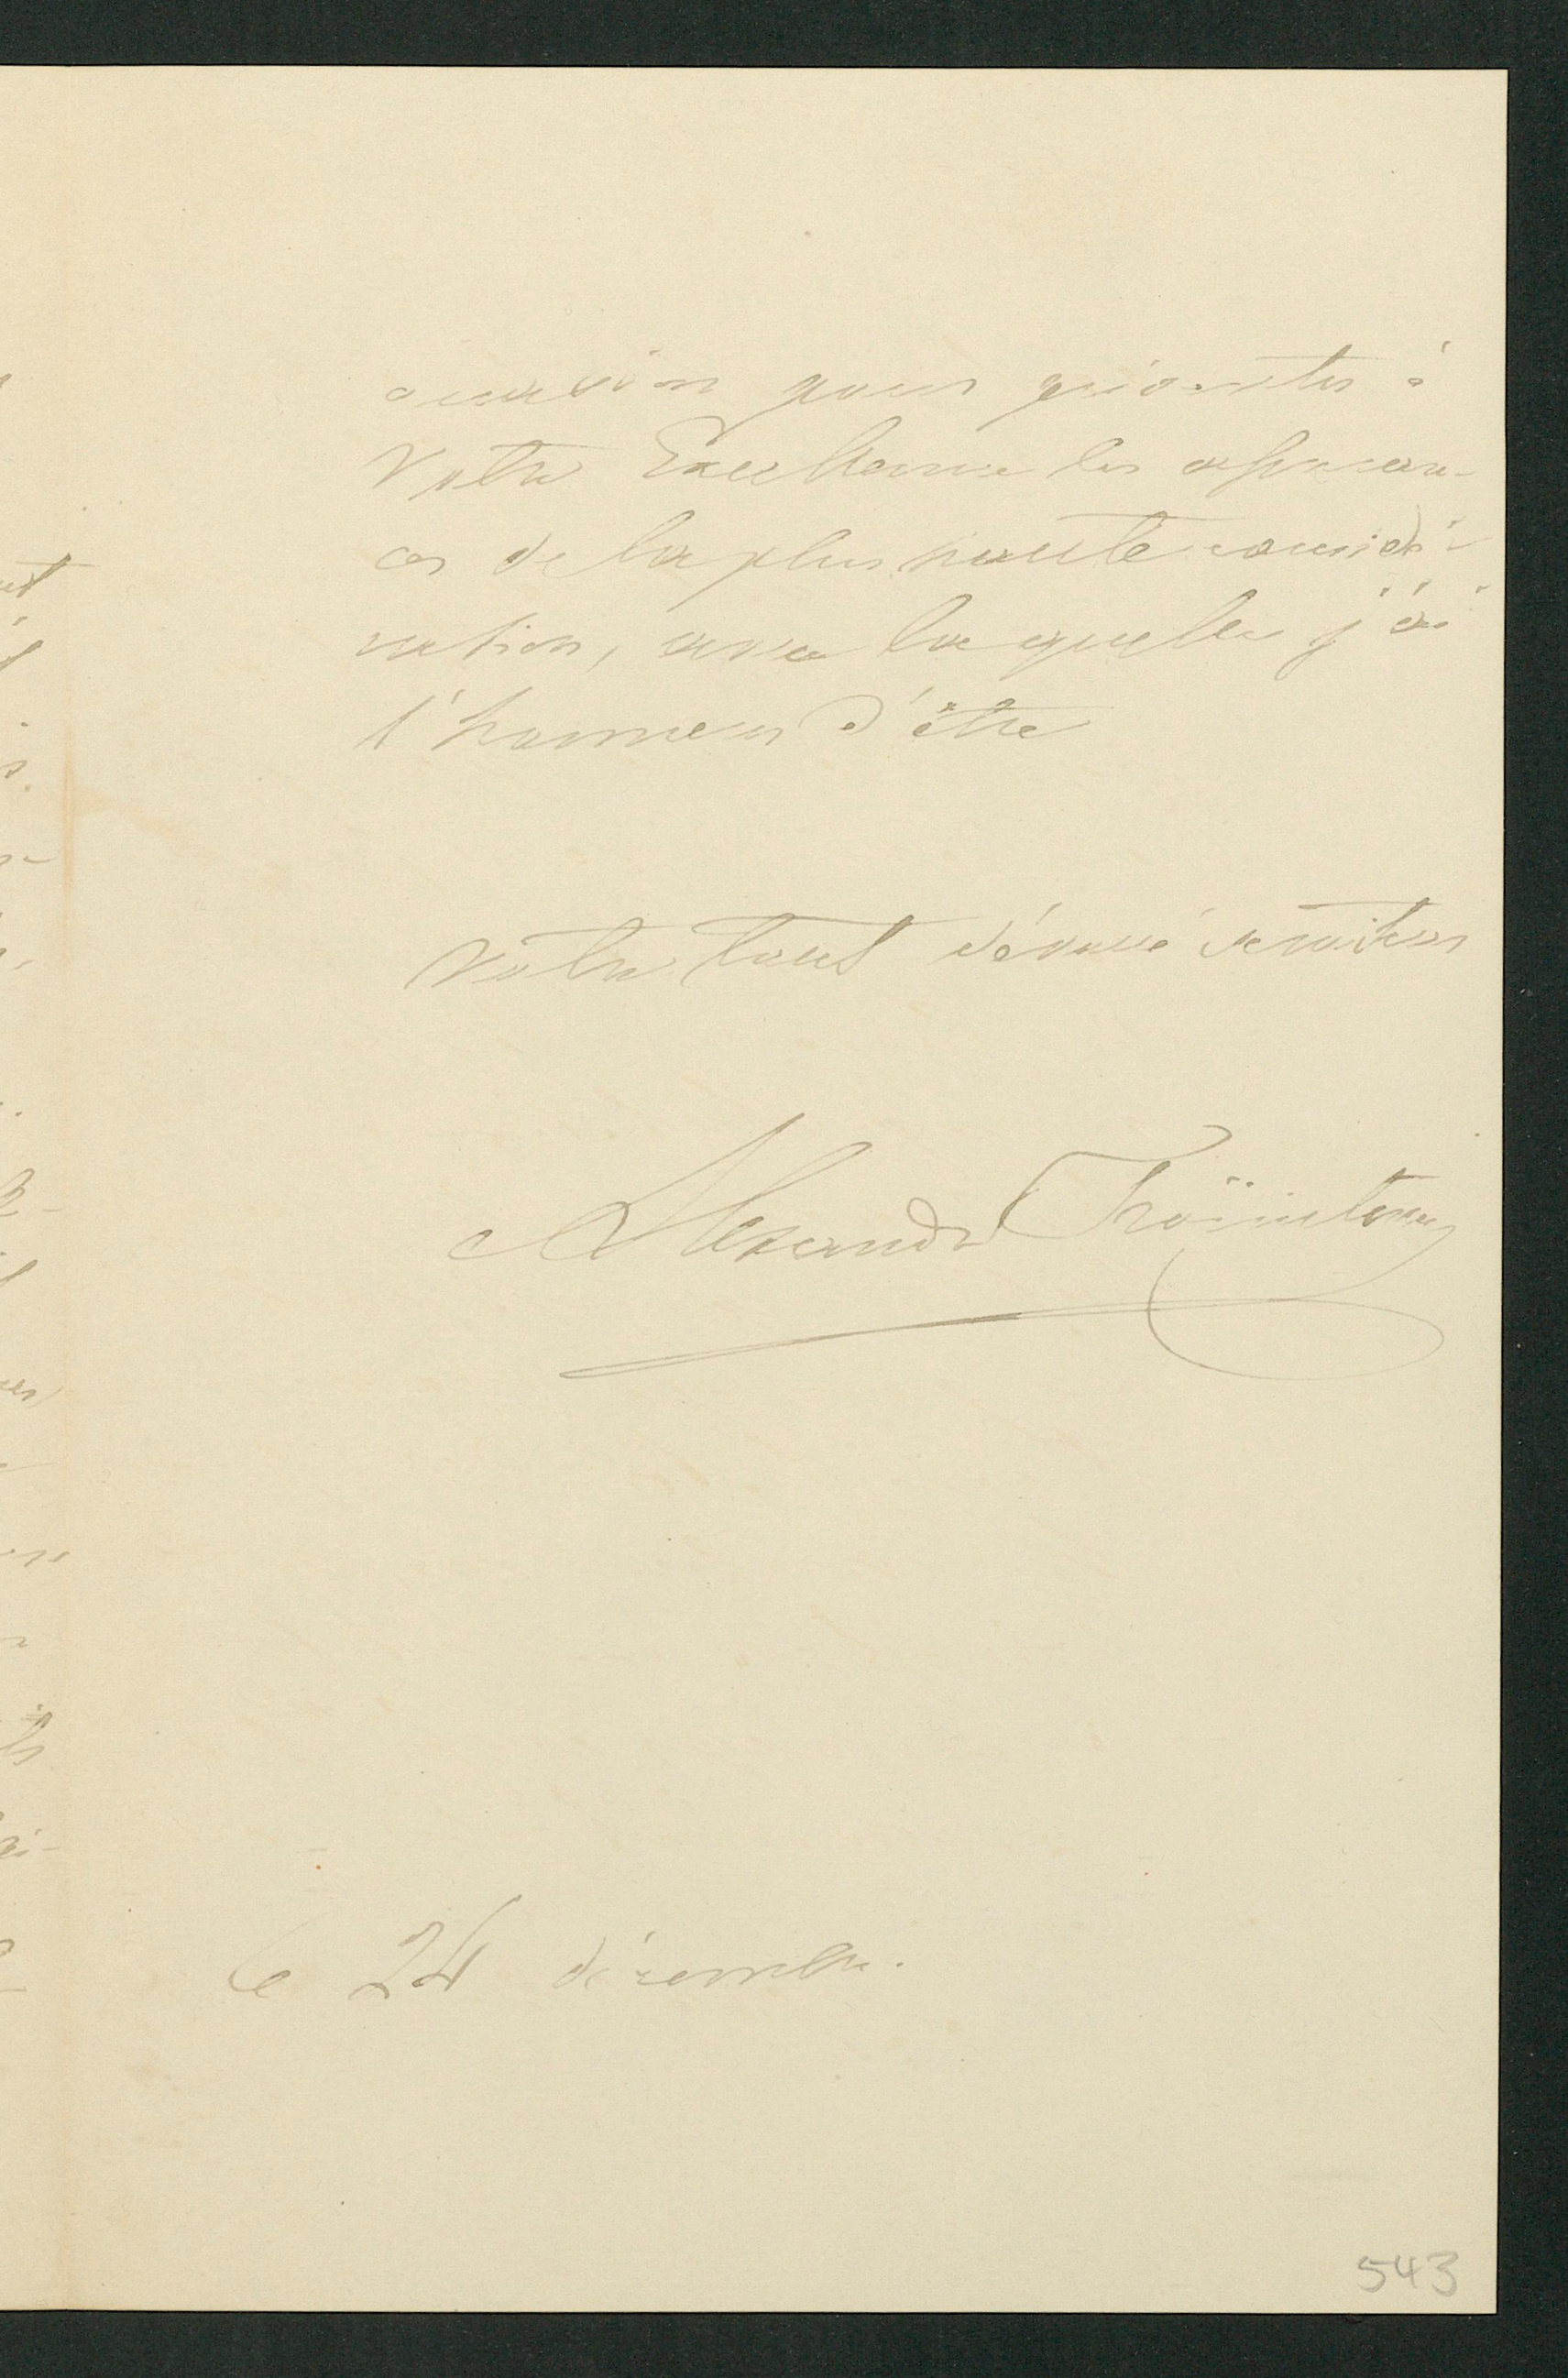 occasion pour présenter à
Votre Excellence les assuran-
ces de la plus haute considé-
ration, avec laquelle j'ai
l'honneur d'être
Votre tout dévoué serviteur
Alexandre
le 24 décembre.
543